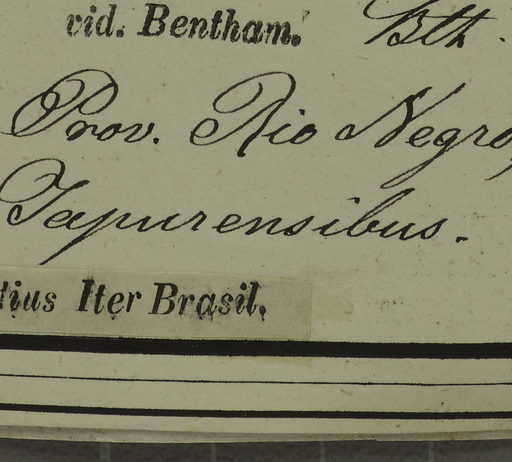 vid. Bentham. Bth.
Prov. Rio Negro,
Japurensibus.
tius Iter Brasil.